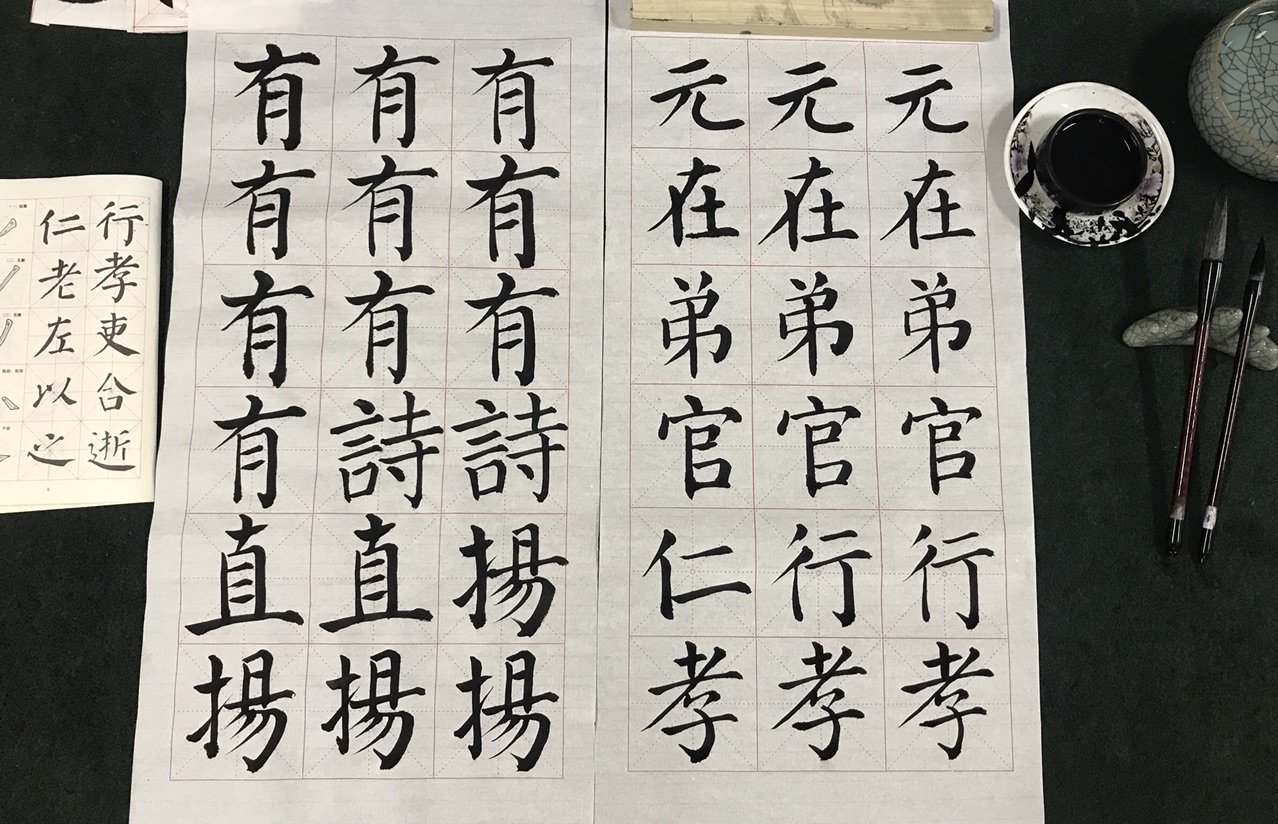 元在弟官行孝
元在弟官行孝
元在弟官仁孝
有有有詩揚揚
有有有詩直揚
有有有有直揚
行孝吏合逝
仁老左以之